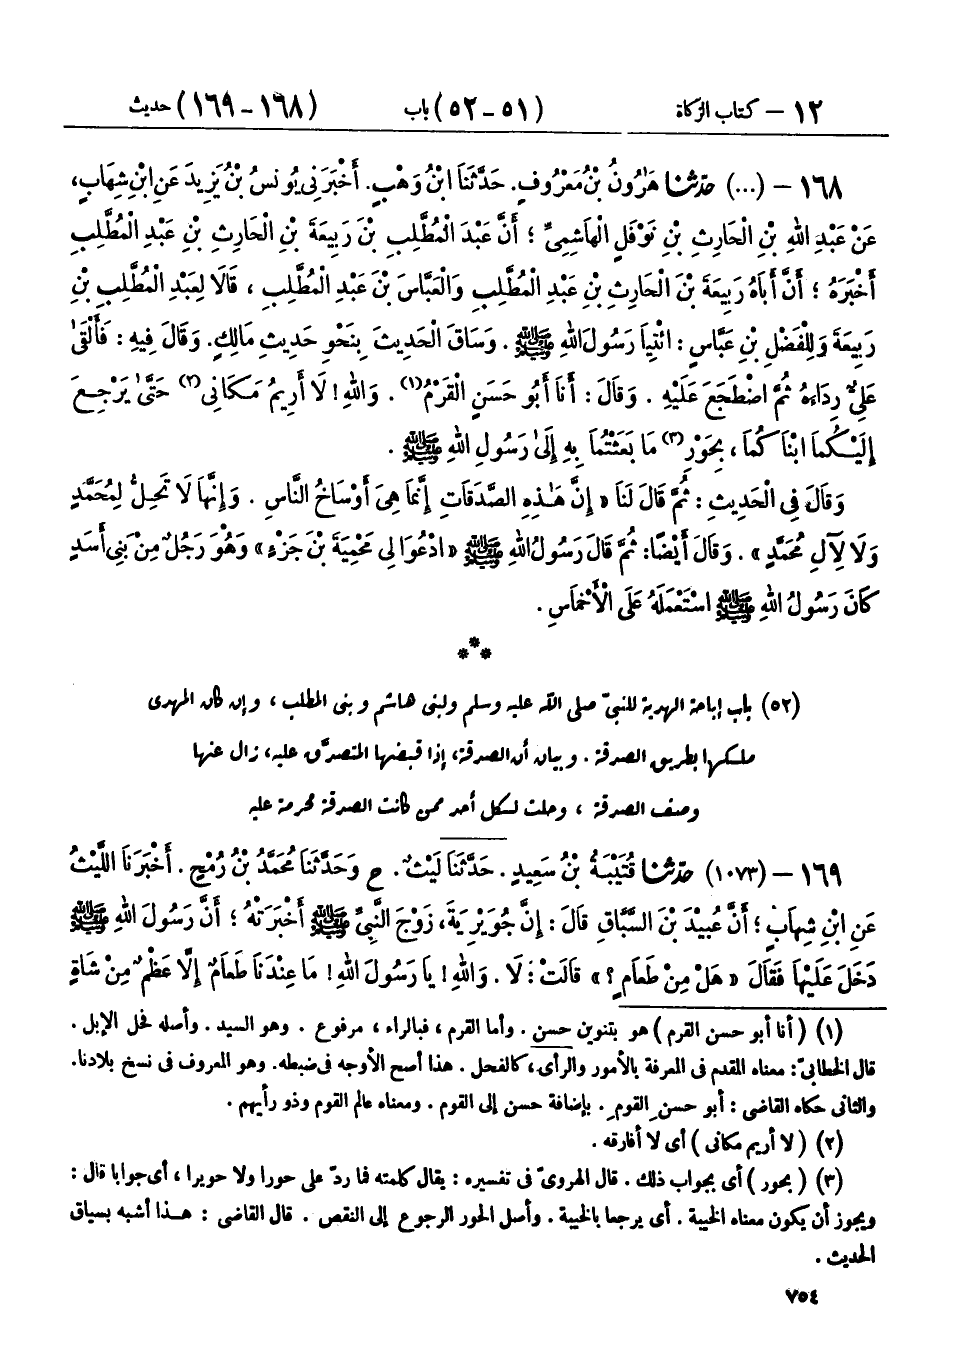 ١٢ – كتاب الزكاة (٥١ - ٥٢) باب (١٦٨ - ١٦٩) حديث
١٦٨ – (...) حدّثنا هَٰرُونُ بْنُ مَعْرُوفٍ. حَدَّثَنَا ابْنُ وَهْبٍ. أَخْبَرَنِي يُونُسُ بْنُ يَزِيدَ عَنِ ابْنِ شِهَابٍ،
عَنْ عَبْدِ اللهِ بْنِ الْحَارِثِ بْنِ نَوْفَلٍ الْهَاشِمِيِّ؛ أَنَّ عَبْدَ الْمُطَّلِبِ بْنَ رَبِيعَةَ بْنِ الْحَارِثِ بْنِ عَبْدِ الْمُطَّلِبِ
أَخْبَرَهُ؛ أَنَّ أَبَاهُ رَبِيعَةَ بْنَ الْحَارِثِ بْنِ عَبْدِ الْمُطَّلِبِ وَالْعَبَّاسَ بْنَ عَبْدِ الْمُطَّلِبِ، قَالَا لِعَبْدِ الْمُطَّلِبِ بْنِ
رَبِيعَةَ وَلِلْفَضْلِ بْنِ عَبَّاسٍ: ائْتِيَا رَسُولَ اللهِ ﷺ. وَسَاقَ الْحَدِيثَ بِنَحْوِ حَدِيثِ مَالِكٍ. وَقَالَ فِيهِ: فَأَلْقَىٰ
عَلِيٌّ رِدَاءَهُ ثُمَّ اضْطَجَعَ عَلَيْهِ. وَقَالَ: أَنَا أَبُو حَسَنٍ الْقَرْمُ(١). وَاللهِ! لَا أَرِيمُ مَكَانِي(٢) حَتَّىٰ يَرْجِعَ
إِلَيْكُمَا ابْنَاكُمَا، بِحَوْرِ(٣) مَا بَعَثْتُمَا بِهِ إِلَىٰ رَسُولِ اللهِ ﷺ.
وَقَالَ فِي الْحَدِيثِ: ثُمَّ قَالَ لَنَا « إِنَّ هَٰذِهِ الصَّدَقَاتِ إِنَّمَا هِيَ أَوْسَاخُ النَّاسِ. وَإِنَّهَا لَا تَحِلُّ لِمُحَمَّدٍ
وَلَا لِآلِ مُحَمَّدٍ ». وَقَالَ أَيْضًا: ثُمَّ قَالَ رَسُولُ اللهِ ﷺ « ادْعُوَا لِي مَحْمِيَةَ بْنَ جَزْءٍ » وَهُوَ رَجُلٌ مِنْ بَنِي أَسَدٍ
كَانَ رَسُولُ اللهِ ﷺ اسْتَعْمَلَهُ عَلَى الْأَخْمَاسِ.
***
(٥٢) باب إباحة الهدية للنبيّ صلى الله عليه وسلم ولبنى هاشم وبنى المطلب، وإن كان المهدى
ملكها بطريق الصدقة. وبيان أن الصدقة، إذا قبضها المتصدَّق عليه، زال عنها
وصف الصدقة، وحلت لكل أحد ممن كانت الصدقة محرمة عليه
١٦٩ – (١٠٧٣) حدّثنا قُتَيْبَةُ بْنُ سَعِيدٍ. حَدَّثَنَا لَيْثٌ. ح وَحَدَّثَنَا مُحَمَّدُ بْنُ رُمْحٍ. أَخْبَرَنَا اللَّيْثُ
عَنِ ابْنِ شِهَابٍ؛ أَنَّ عُبَيْدَ بْنَ السَّبَّاقِ قَالَ: إِنَّ جُوَيْرِيَةَ، زَوْجَ النَّبِيِّ ﷺ أَخْبَرَتْهُ؛ أَنَّ رَسُولَ اللهِ ﷺ
دَخَلَ عَلَيْهَا فَقَالَ « هَلْ مِنْ طَعَامٍ؟ » قَالَتْ: لَا. وَاللهِ! يَا رَسُولَ اللهِ! مَا عِنْدَنَا طَعَامٌ إِلَّا عَظْمٌ مِنْ شَاةٍ
(١) (أنا أبو حسن القرم) هو بتنوين حسن. وأما القرم، فبالراء، مرفوع. وهو السيد. وأصله فحل الإبل.
قال الخطابىّ: معناه المقدم فى المعرفة بالأمور والرأى، كالفحل. هذا أصح الأوجه فى ضبطه. وهو المعروف فى نسخ بلادنا.
والثانى حكاه القاضى: أبو حسنِ القومِ. بإضافة حسن إلى القوم. ومعناه عالم القوم وذو رأيهم.
(٢) (لا أريم مكانى) أى لا أفارقه.
(٣) (بحور) أى بجواب ذلك. قال الهروىّ فى تفسيره: يقال كلمته فما ردّ على حورا ولا حويرا، أى جوابا قال:
ويجوز أن يكون معناه الخيبة. أى يرجعا بالخيبة. وأصل الحور الرجوع إلى النقص. قال القاضى: هذا أشبه بسياق
الحديث.
٧٥٤